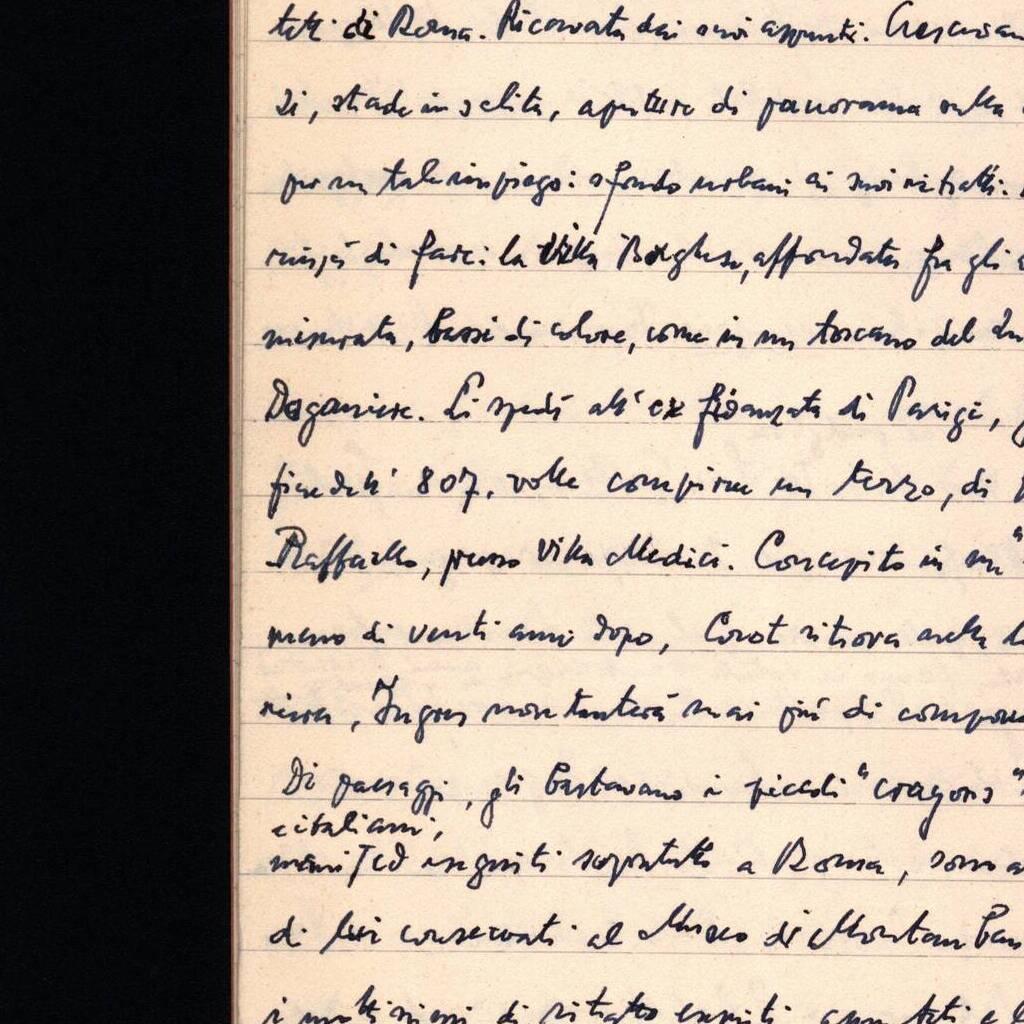 tetti di Roma. Ricavata dai suoi appunti.
zi, strade in salita, aperture di panorama sulla
per un tale impiego: sfondo urbani ai suoi ritratti.
di farci la Villa Borghese, affondata fra gli
misurata, bassi di colore, come in un toscano del
Doganiere. Li spedì all' ex fidanzata di Parigi,
fine dell' 807. volle compirne un terzo, di
Raffaello, presso Villa Medici. Concepito in un "
meno di venti anni dopo, Corot ritrova nella
Ingres non tenterà mai più di comporre
Di paesaggi, gli bastavano i piccoli "crayons"
e italiani,
romani ed eseguiti sopratutto a Roma, sono
di lui conservati al Museo di Montauban
i moltissimi di ritratto